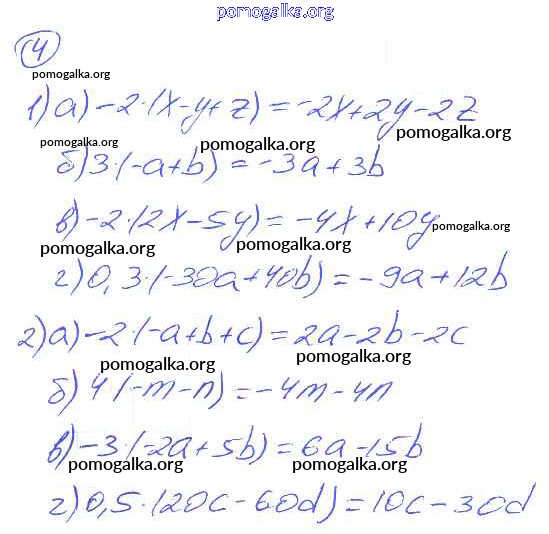 pomogalka.org
4
pomogalka.org
1) а) -2·(x-y+z)=-2x+2y-2z
pomogalka.org pomogalka.org
б) 3·(-a+b)=-3a+3b
в) -2·(2x-5y)=-4x+10y pomogalka.org
pomogalka.org pomogalka.org
г) 0,3·(-30a+40b)=-9a+12b
2) а) -2·(-a+b+c)=2a-2b-2c
pomogalka.org pomogalka.org
б) 4(-m-n)=-4m-4n
в) -3·(-2a+5b)=6a-15b
pomogalka.org pomogalka.org
г) 0,5·(20c-60d)=10c-30d